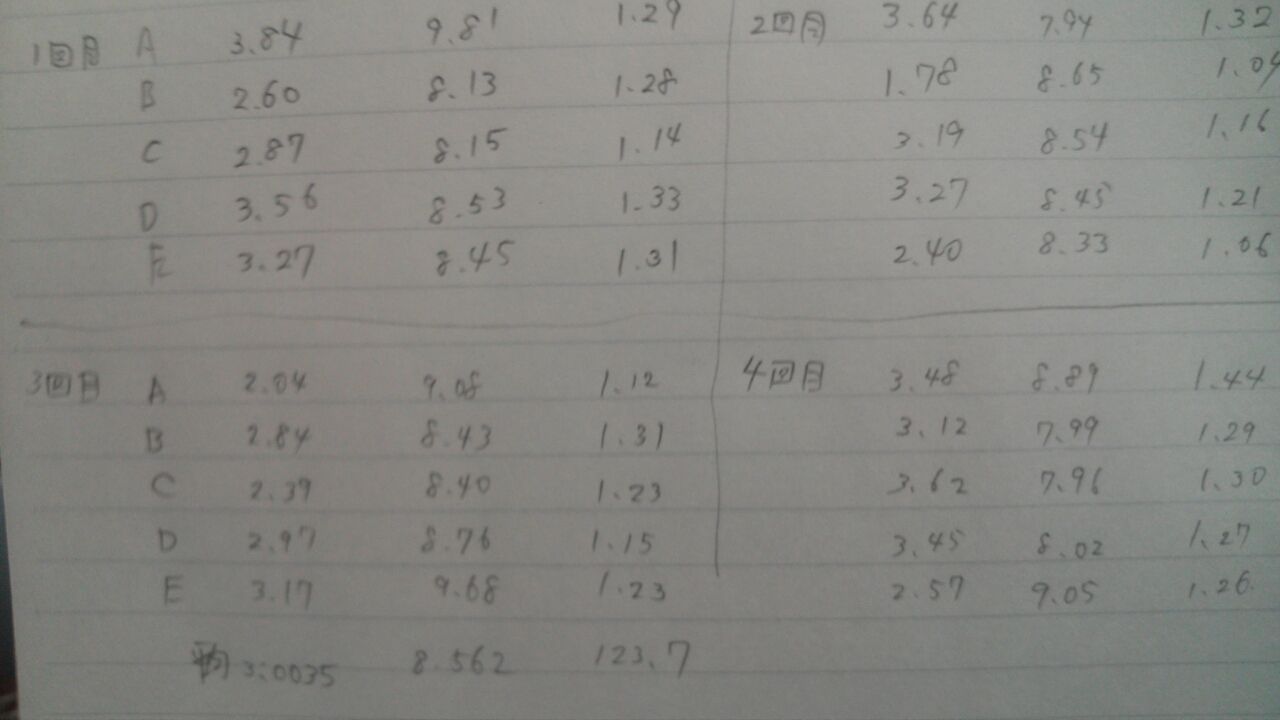 1回目 A 3.84 9.81 1.29 2回目 3.64 7.94 1.32
B 2.60 8.13 1.28 1.78 8.65 1.04
C 2.87 8.15 1.14 3.19 8.54 1.16
D 3.56 8.53 1.33 3.27 8.45 1.21
E 3.27 8.45 1.31 2.40 8.33 1.06
3回目 A 2.04 9.08 1.12 4回目 3.48 8.89 1.44
B 2.84 8.43 1.31 3.12 7.99 1.29
C 2.39 8.40 1.23 3.62 7.96 1.30
D 2.97 8.76 1.15 3.45 8.02 1.27
E 3.17 9.68 1.23 2.57 9.05 1.26
平均 3.0035 8.562 123.7